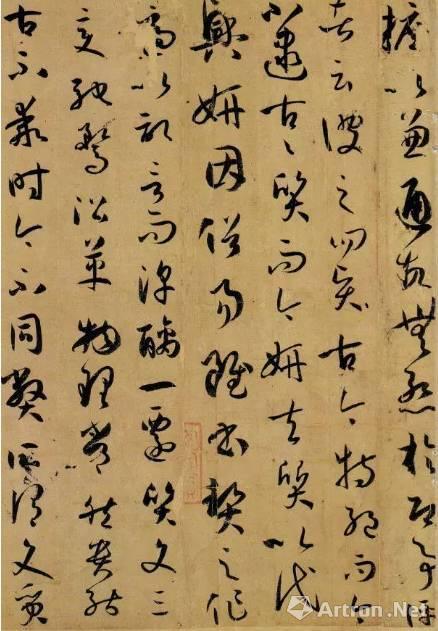 摭以兼通故無慚於即事評
者云彼之四賢古今特絕而今
不逮古々質而今妍夫質以代
興妍因俗易雖書契之作
適以記言而淳醨一遷質文三
變馳騖沿革物理常然貴能
古不乖時今不同弊所謂文質
Artron.Net